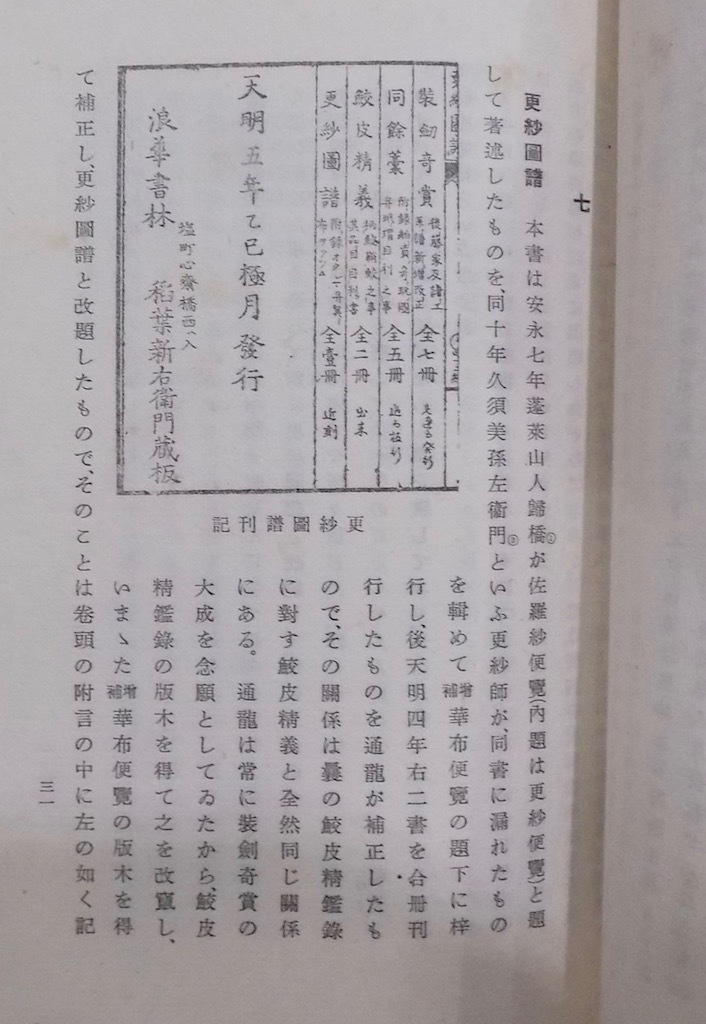 七
更紗圖譜　本書は安永七年蓬萊山人歸橋が佐羅紗便覽(內題は更紗便覽)と題
して著述したものを、同十年久須美孫左衞門といふ更紗師が、同書に漏れたもの
を輯めて增補華布便覽の題下に梓
行し、後天明四年右二書を合册刊
行したものを通龍が補正したも
ので、その關係は曩の鮫皮精鑑錄
に對す鮫皮精義と全然同じ關係
にある。通龍は常に裝劍奇賞の
大成を念願としてゐたから、鮫皮
精鑑錄の版木を得て之を改竄し、
いまゝた增補華布便覽の版木を得
て補正し、更紗圖譜と改題したもので、そのことは卷頭の附言の中に左の如く記
裝劒奇賞 後藤家及諸工系譜新增改正 全七冊
同餘藁 全五冊
鮫皮精義 全二冊 出来
更紗圖譜 全壹冊 近刻
天明五年乙巳極月發行
浪華書林
塩町心齋橋西ヘ入
稻葉新右衞門藏板
更紗圖譜刊記
三一